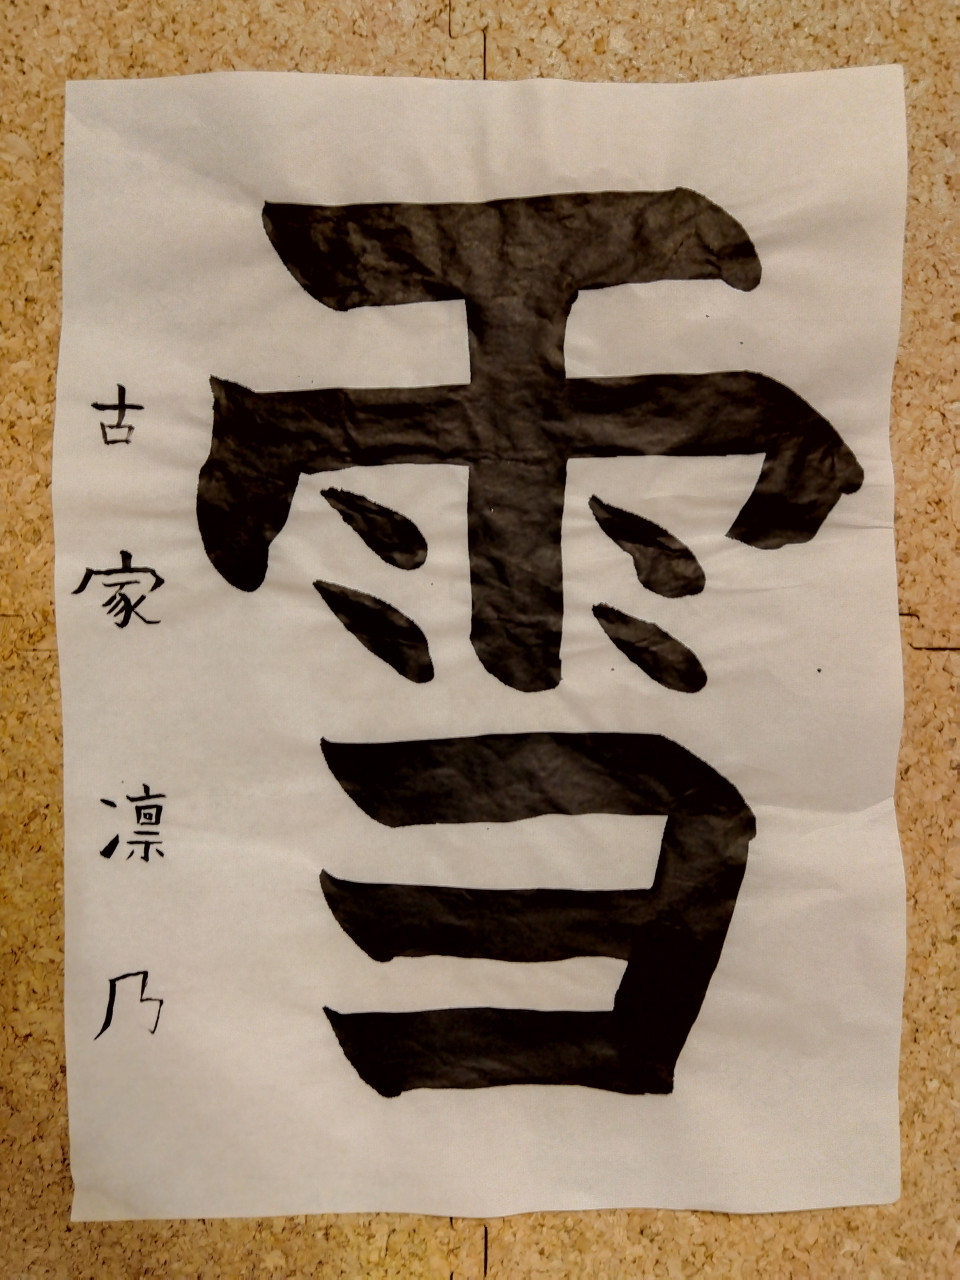 雪
古家凛乃